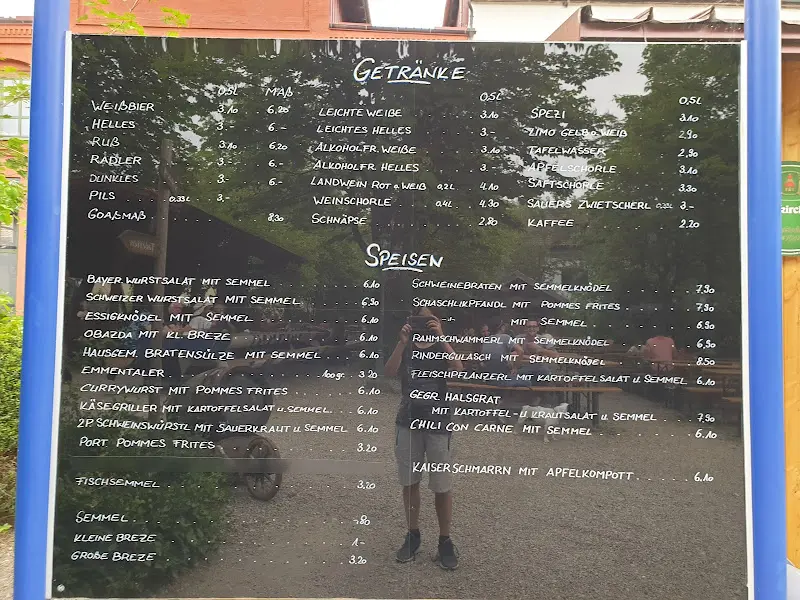 GETRÄNKE
0,5L MAß
WEIßBIER 3.10 6.20
HELLES 3.- 6.-
RUß 3.10 6.20
RADLER 3.- 6.-
DUNKLES 3.- 6.-
PILS 0,33L 3.-
GOAßMAß 8,30
0,5L
LEICHTE WEIßE 3.10
LEICHTES HELLES 3.-
ALKOHOLFR. WEIßE 3.10
ALKOHOLFR. HELLES 3.-
LANDWEIN ROT O. WEIß 0,2L 4.10
WEINSCHORLE 0,4L 4.30
SCHNÄPSE 2.80
0,5L
SPEZI 3.10
ZIMO GELB O. WEIß 2,90
TAFELWASSER 2,90
APFELSCHORLE 3.10
SAFTSCHORLE 3.30
SAUERS ZWIETSCHERL 0,33L 3.-
KAFFEE 2.20
SPEISEN
BAYER. WURSTSALAT MIT SEMMEL 6.10
SCHWEIZER WURSTSALAT MIT SEMMEL 6,90
ESSIGKNÖDEL MIT SEMMEL 6.10
OBAZDA MIT KL. BREZE 6.10
HAUSGEM. BRATENSÜLZE MIT SEMMEL 6.10
EMMENTALER 100 gr. 3.20
CURRYWURST MIT POMMES FRITES 6.10
KÄSEGRILLER MIT KARTOFFELSALAT U. SEMMEL 6.10
2P SCHWEINSWÜRSTL MIT SAUERKRAUT U. SEMMEL 6.10
PORT. POMMES FRITES 3.20
FISCHSEMMEL 3,20
SEMMEL -,80
KLEINE BREZE 1.-
GROßE BREZE 3.20
SCHWEINEBRATEN MIT SEMMELKNÖDEL 7,90
SCHASCHLIKPFANDL MIT POMMES FRITES 7,90
-"- MIT SEMMEL 6.90
RAHMSCHWAMMERL MIT SEMMELKNÖDEL 6,90
RINDERGULASCH MIT SEMMELKNÖDEL 8.50
FLEISCHPFLANZERL MIT KARTOFFELSALAT U. SEMMEL 6.10
GEGR. HALSGRAT
MIT KARTOFFEL- U. KRAUTSALAT U. SEMMEL 7,90
CHILI CON CARNE MIT SEMMEL 6.10
KAISERSCHMARRN MIT APFELKOMPOTT 6.10